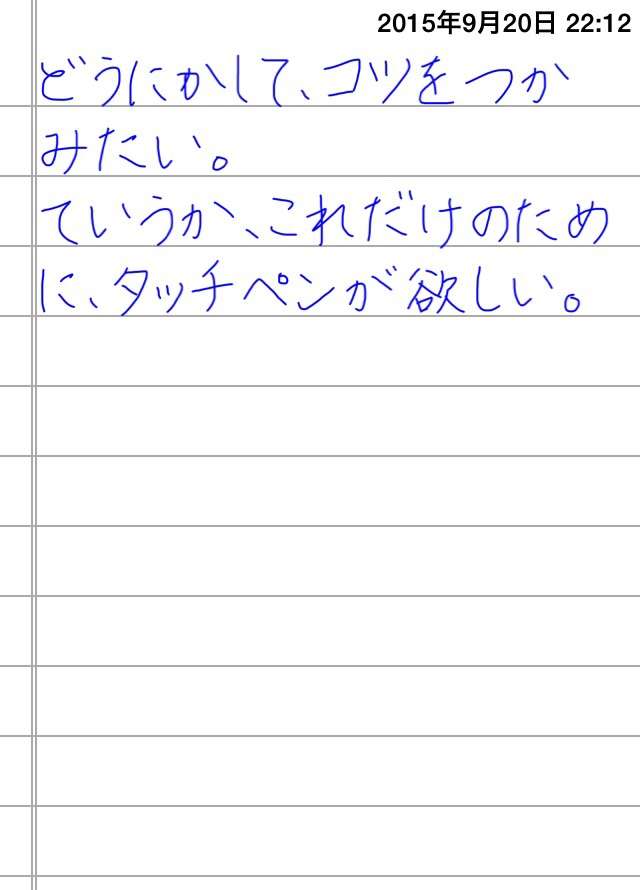 2015年9月20日 22:12
どうにかして、コツをつか
みたい。
ていうか、これだけのため
に、タッチペンが欲しい。